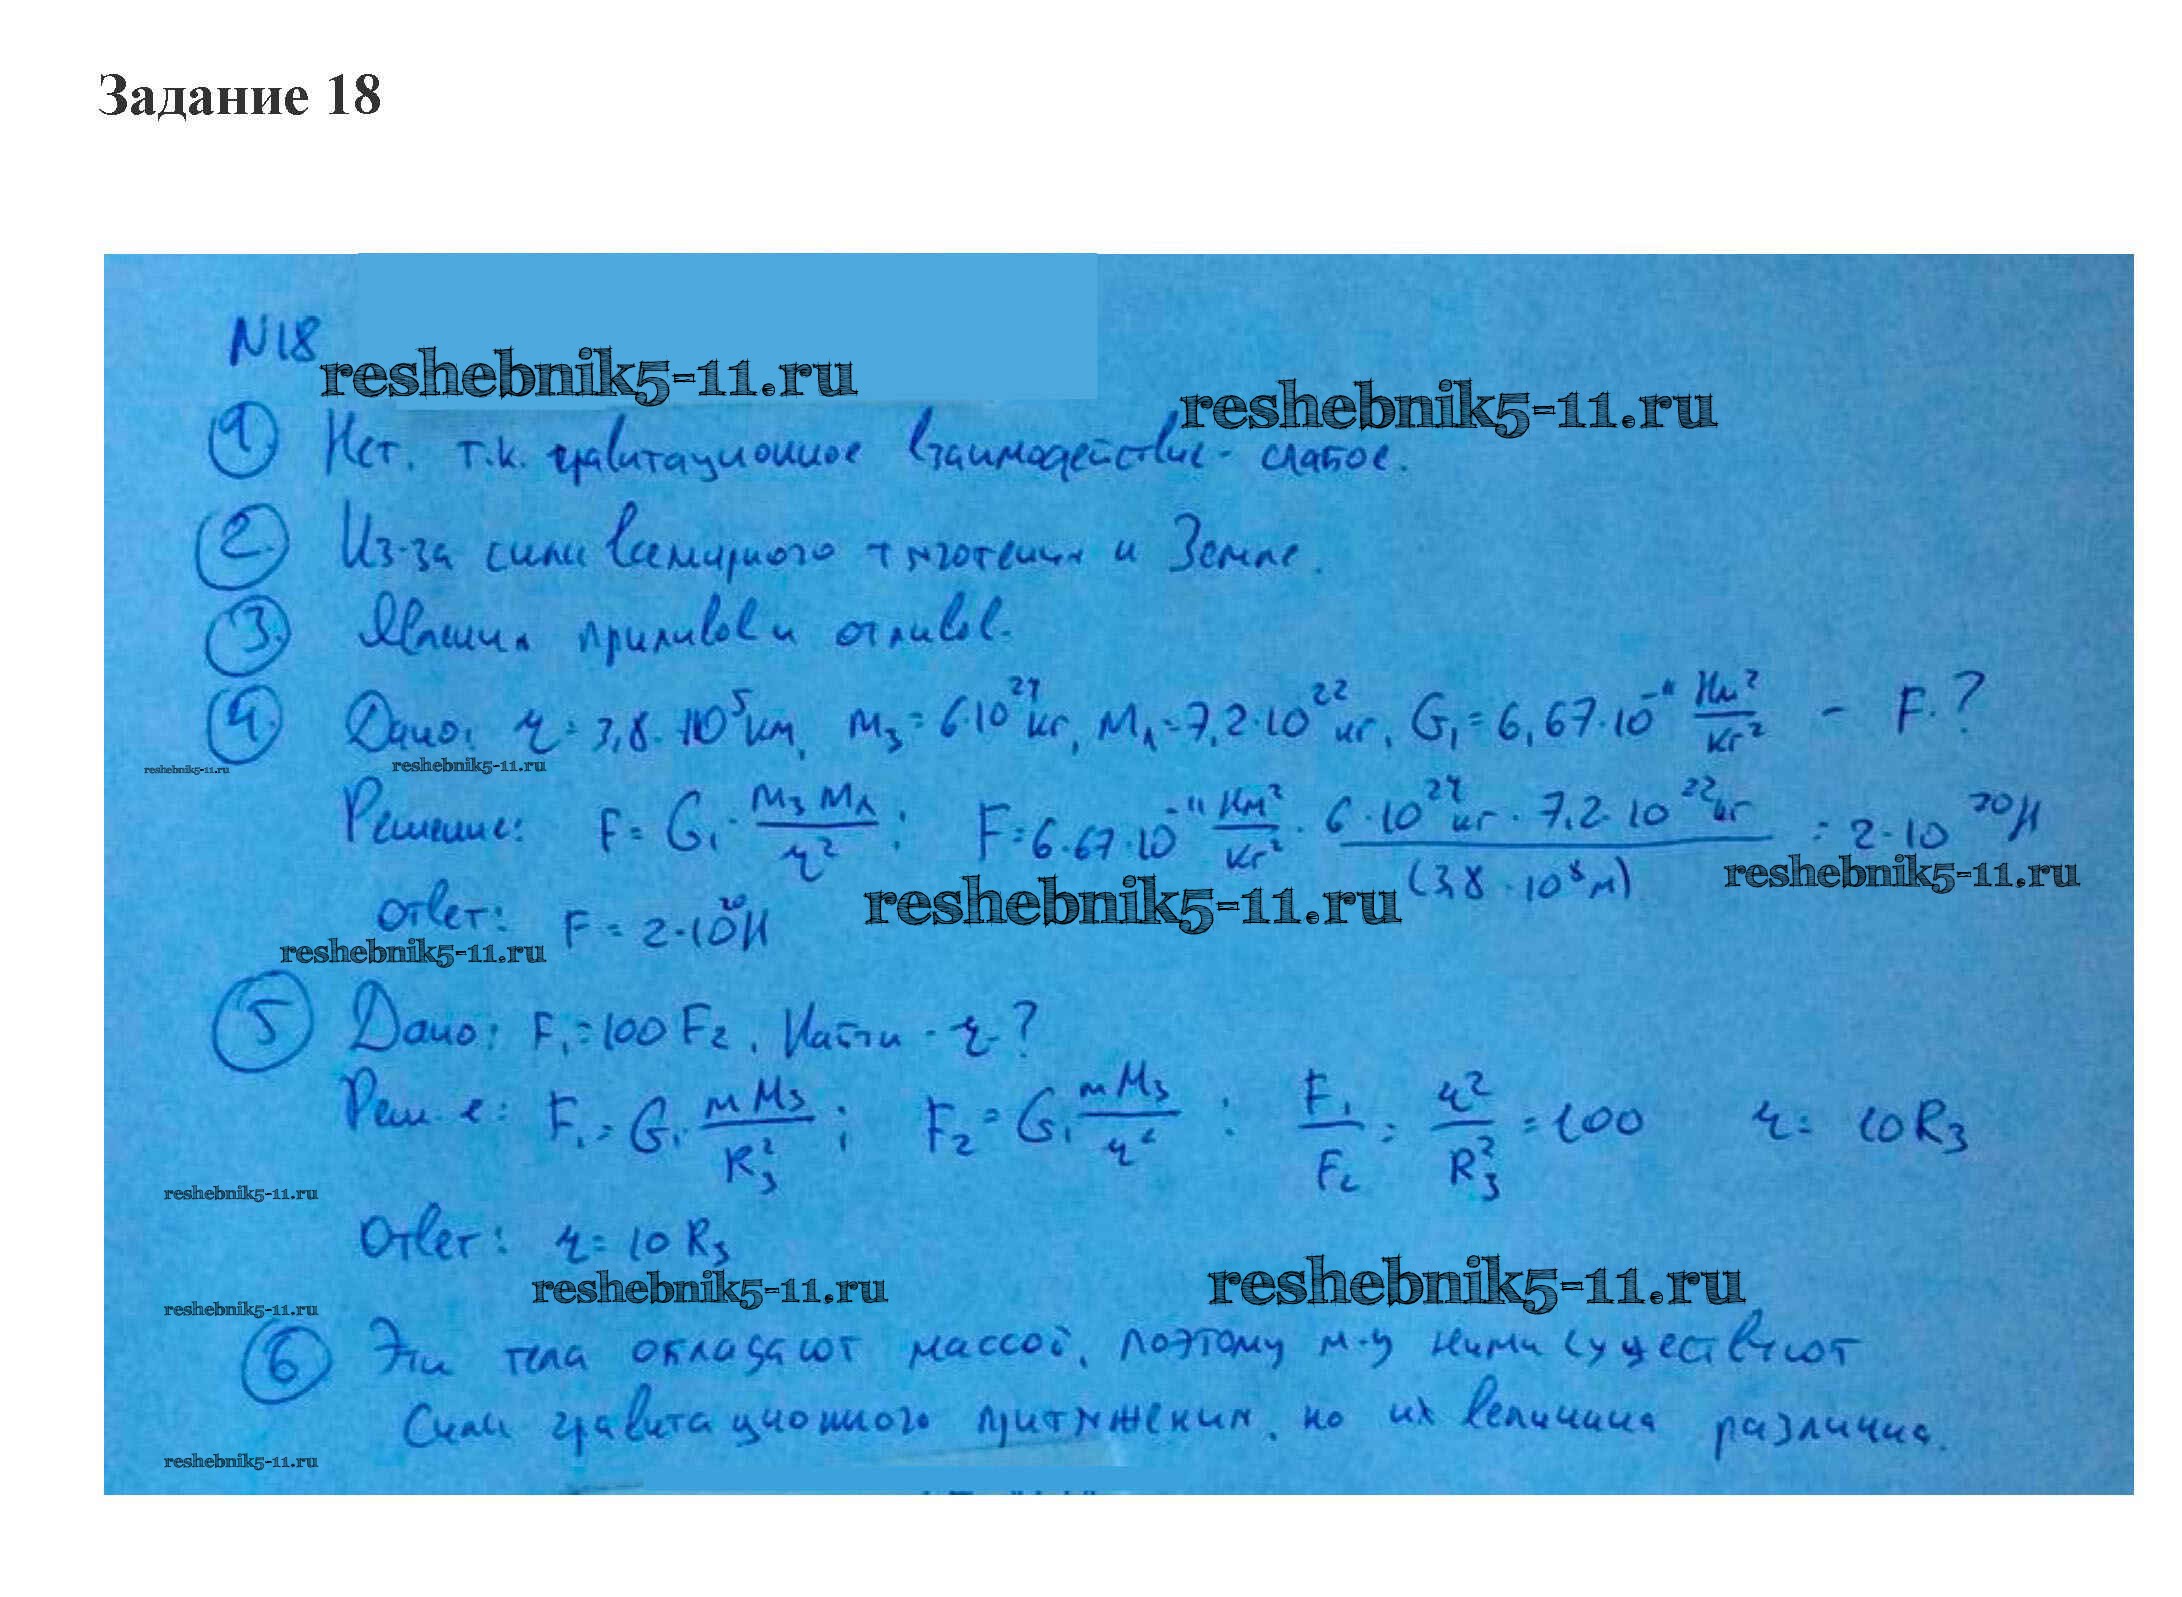 Задание 18
N18
reshebnik5-11.ru
reshebnik5-11.ru
1 Нет, т.к. гравитационное взаимодействие - слабое.
2. Из-за силы всемирного тяготения и Земле.
3. Явления приливов и отливов.
4. Дано: r = 3,8 · 10^5 км, M_З = 6·10^24 кг, M_Л = 7,2·10^22 кг, G_1 = 6,67·10^-11 Нм²/кг² - F. ?
reshebnik5-11.ru reshebnik5-11.ru
Решение: F = G_1 · M_З M_Л / r² ; F = 6.67·10^-11 Нм²/кг² · 6·10^24 кг · 7,2·10^22 кг / (3,8 · 10^8 м) = 2·10^20 Н
reshebnik5-11.ru reshebnik5-11.ru
Ответ: F = 2·10^20 Н
reshebnik5-11.ru
5 Дано: F_1 = 100 F_2. Найти - r - ?
Реш-е: F_1 = G_1 · m M_З / R_З² ; F_2 = G_1 m M_З / r² ; F_1 / F_2 = r² / R_З² = 100 r = 10 R_З
reshebnik5-11.ru
Ответ: r = 10 R_З
reshebnik5-11.ru reshebnik5-11.ru
reshebnik5-11.ru
6 Эти тела обладают массой, поэтому м-у ними существуют
силы гравитационного притяжения, но их величина различна.
reshebnik5-11.ru